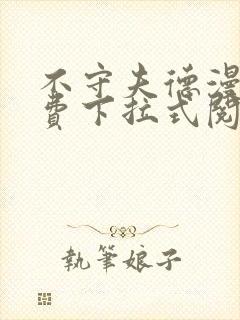 不守夫德漫
费下拉式阅
執筆娘子